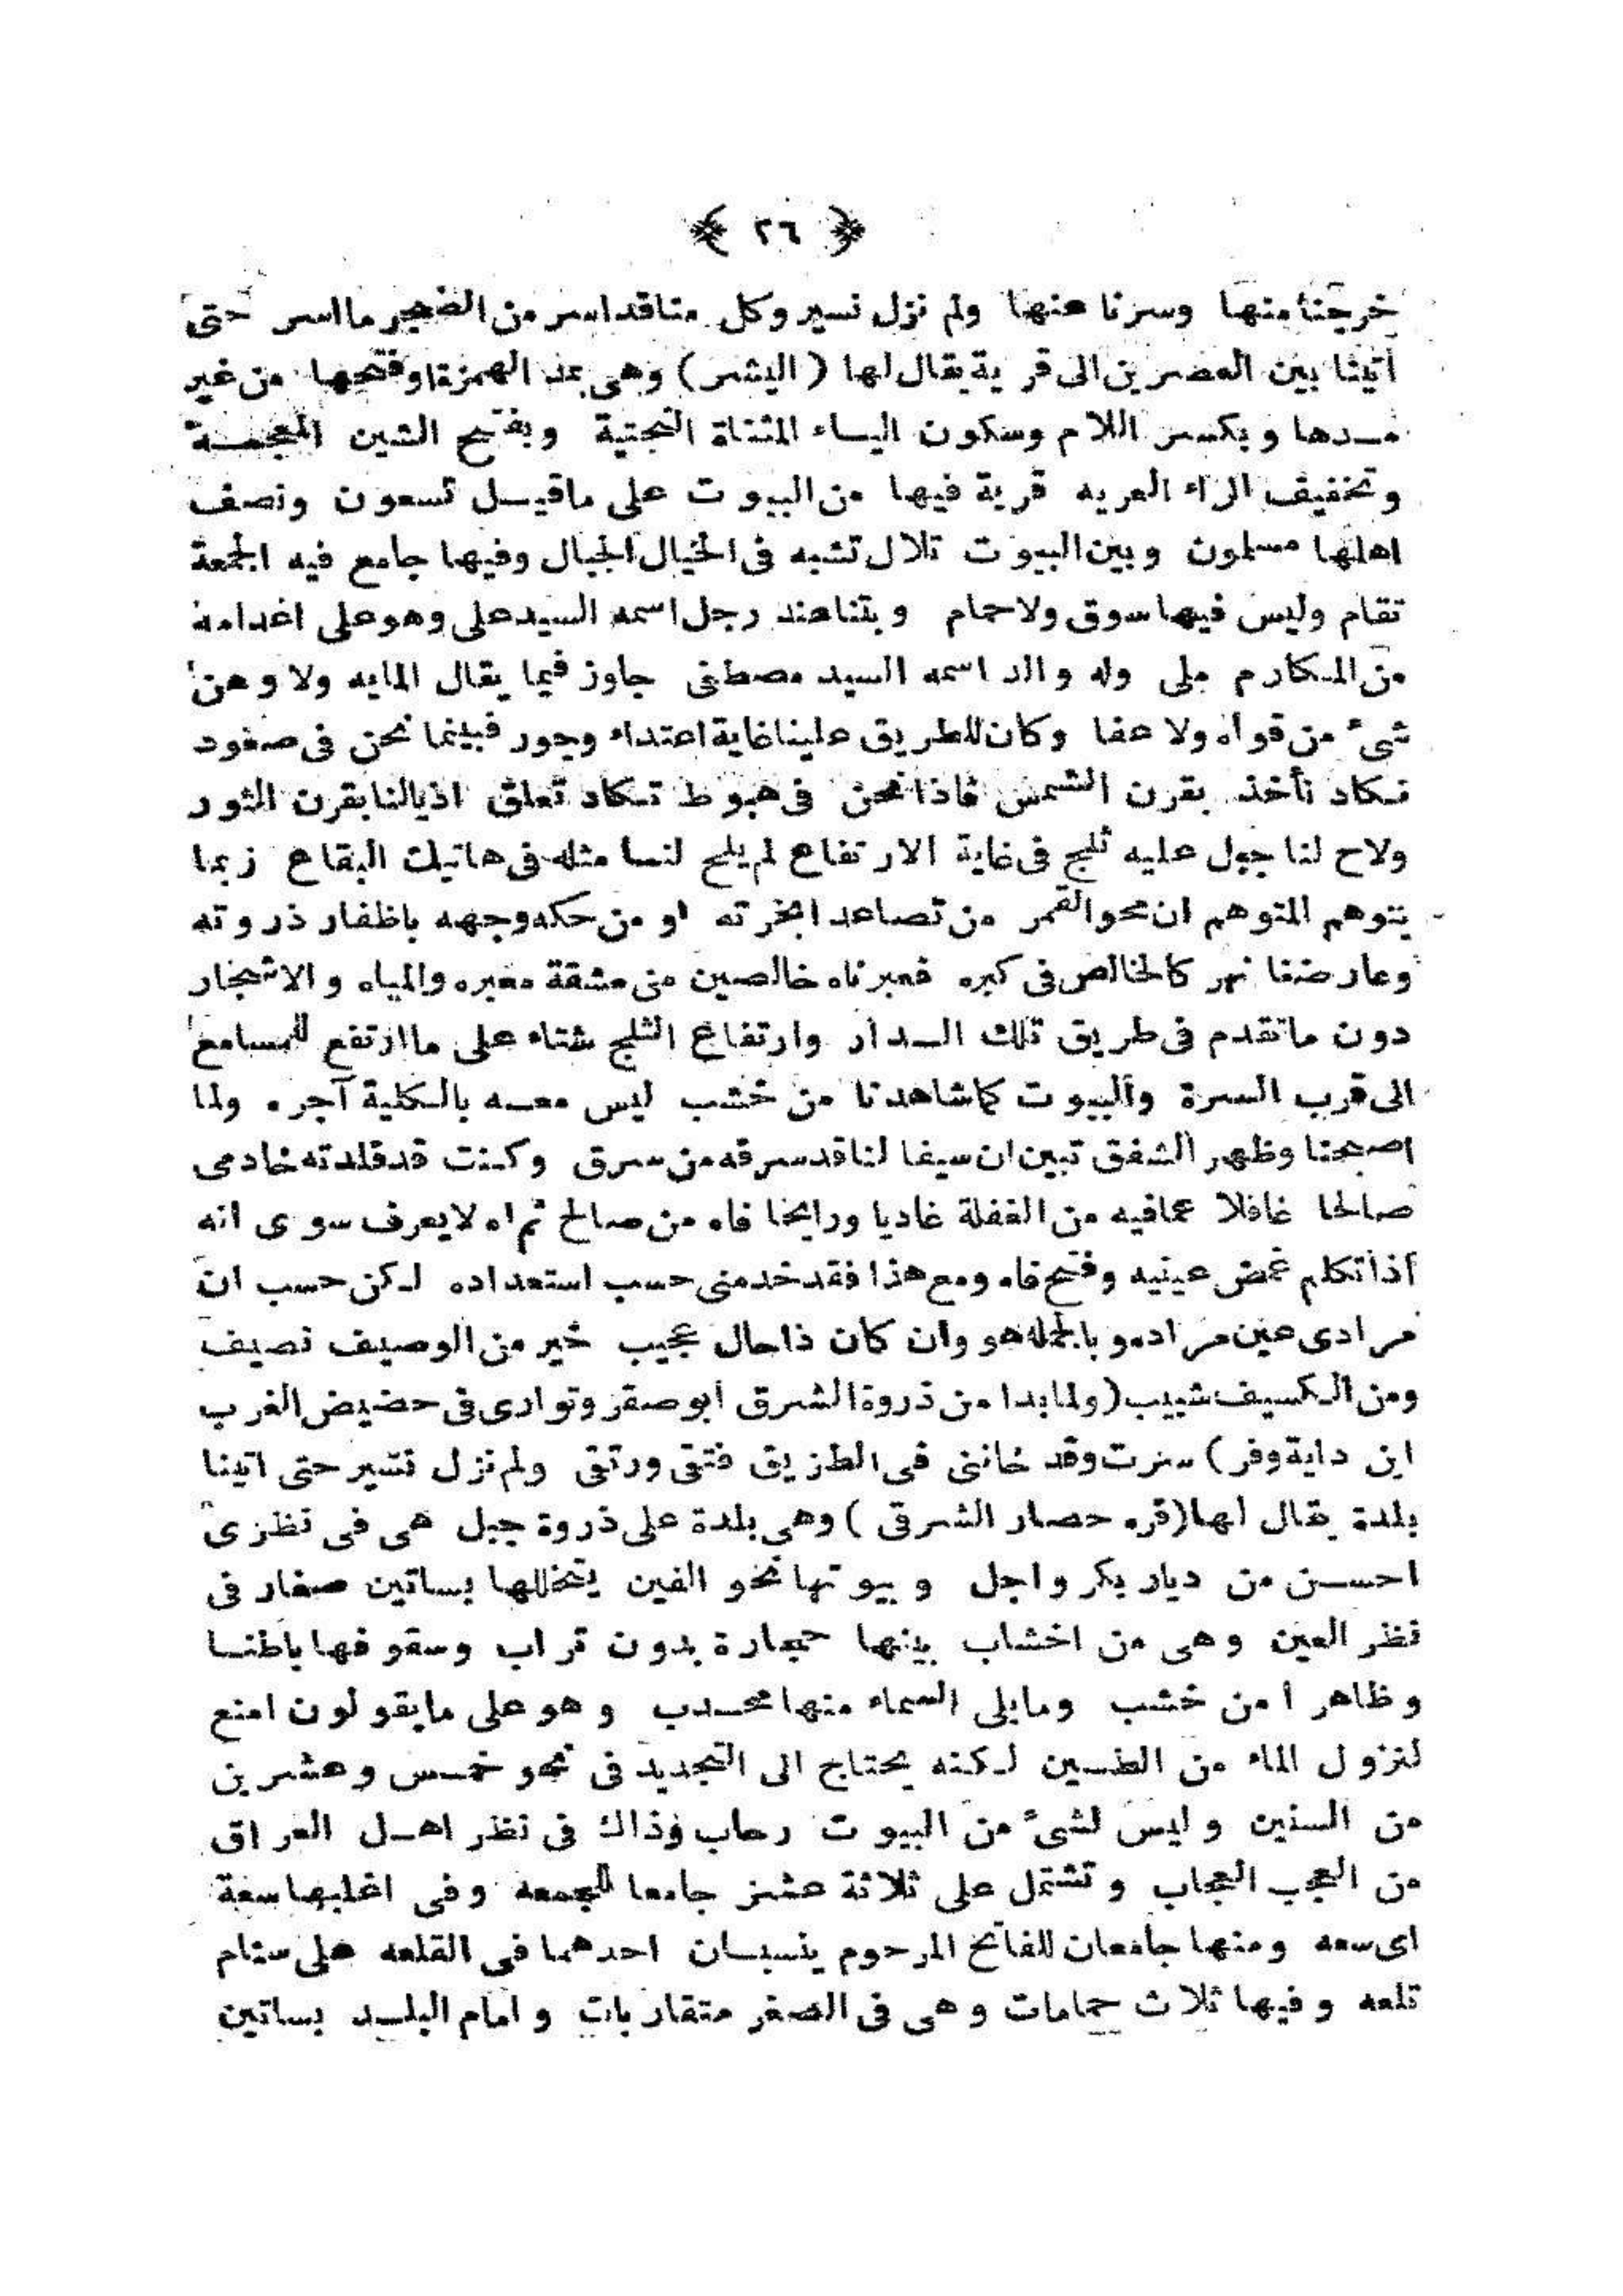 ﴿ ٢٦ ﴾
خرجنا منها وسرنا عنها ولم نزل نسير وكل منا قد اسر من الضجر ما اسر حتى
أتينا بين العصرين الى قرية يقال لها ( اليشر ) وهى بمد الهمزة او فتحها من غير
مدها وبكسر اللام وسكون الياء المثناة التحتية وبفتح الشين المعجمة
وتخفيف الراء العريه قرية فيها من البيوت على ماقيل تسعون ونصف
اهلها مسلمون وبين البيوت تلال تشبه فى الخيال الجبال وفيها جامع فيه الجمعة
تقام وليس فيها سوق ولا حمام وبتنا عند رجل اسمه السيد على وهو على اعدامه
من المكارم ملى وله والد اسمه السيد مصطفى جاوز فيما يقال المايه ولا وهن
شىء من قواه ولا عفا وكان للطريق علينا غاية اعتداء وجور فبينما نحن فى صعود
نكاد نأخذ بقرن الشمس فاذا نحن فى هبوط تكاد تعلق اذيالنا بقرن الثور
ولاح لنا جبل عليه ثلج فى غاية الارتفاع لم يلح لنا مثله فى هاتيك البقاع ربما
يتوهم المتوهم ان محو القمر من تصاعد ابخرته او من حكه وجهه باظفار ذروته
وعارضنا نهر كالخالص فى كبره فعبرناه خالصين من مشقة معبره والمياه والاشجار
دون ماتقدم فى طريق تلك الدار وارتفاع الثلج شتاء على ما ارتفع للمسامع
الى قرب السرة والبيوت كما شاهدنا من خشب ليس معه بالكلية آجره ولما
اصبحنا وظهر الشفق تبين ان سيفا لنا قد سرقه من سرق وكنت قد قلدته خادمى
صالحا غافلا عما فيه من الغفلة غاديا ورايحا فاه من صالح ثم اه لا يعرف سوى انه
أذا تكلم غمض عينيه وفتح فاه ومع هذا فقد خدمنى حسب استعداده لكن حسب ان
مرادى عين مراده وبالجملة هو وان كان ذا حال عجيب خير من الوصيف نصيف
ومن الكسيف شبيب ( ولما بدا من ذروة الشرق أبو صقر وتوارى فى حضيض الغرب
ابن داية وفر ) سرت وقد خاننى فى الطريق فتقى ورتقى ولم نزل نسير حتى اتينا
بلدة يقال لها ( قره حصار الشرقى ) وهى بلدة على ذروة جبل هى فى نظرى
احسن من ديار بكر واجل وبيوتها نحو الفين يتخللها بساتين صغار فى
نظر العين وهى من اخشاب بينها حجارة بدون تراب وسقوفها باطنا
وظاهرا من خشب ومايلى السماء منها محدب وهو على مايقولون امنع
لنزول الماء من الطين لكنه يحتاج الى التجديد فى نحو خمس وعشرين
من السنين وليس لشىء من البيوت رحاب وذاك فى نظر اهل العراق
من العجب العجاب وتشتمل على ثلاثة عشر جامعا للجمعه وفى اغلبها سعة
اى سعه ومنها جامعان للفاتح المرحوم ينسبان احدهما فى القلعه على سنام
تلعه وفيها ثلاث حمامات وهى فى الصغر متقاربات وامام البلد بساتين